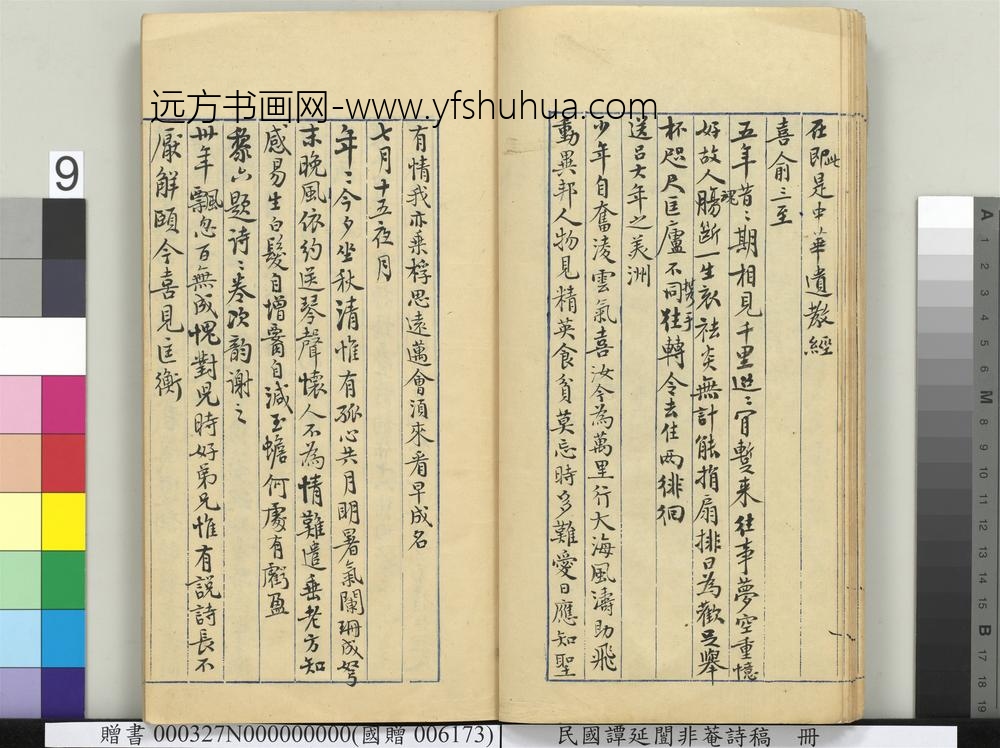 远方书画网-www.yfshuhua.com
在即此是中華遺教經
喜俞三至
五年昔〻期相見千里迢〻肎蹔来往事夢空重憶
好故人腸斷一生哀袪炎無計能捐扇排日為歡足舉
杯咫尺匡廬不同往轉令去住兩徘徊
携手
魂
送呂大年之美洲
少年自奮凌雲氣喜汝今為萬里行大海風濤助飛
動異邦人物見精英食貧莫忘時多難愛日應知聖
有情我亦乘桴思遠邁會須來看早成名
七月十五夜月
年〻今夕坐秋清惟有孤心共月明暑氣闌珊成弩
末晚風依約送琴聲懷人不為情難遣垂老方知
感易生白髮自增霄自減玉蟾何處有虧盈
黎六題詩〻卷次韵謝之
卅年飄忽百無成愧對児時好弟兄惟有説詩長不
厭解頤今喜見匡衡
9
A 1 2 3 4 5 6 M 8 9 10 11 12 13 14 15 B 17 18 19
贈書 000327N000000000(國贈 006173)
民國譚延闓非菴詩稿 冊